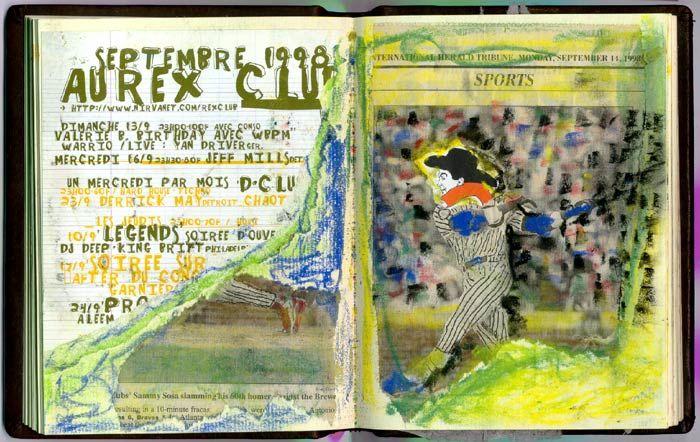 SEPTEMBRE 1998
AU REX CLUB
HTTP://WWW.NIRVANET.COM/REXCLUB
DIMANCHE 13/9 23H00-60F AVEC CONSO
VALERIE B. BIRTHDAY AVEC WBPM
WARRIO/LIVE: YAN DRIVER GER.
MERCREDI 16/9 JEFF MILLS DET
UN MERCREDI PAR MOIS D·CLU
23/9 DERRICK MAY DETROIT CHAOT
LES JEUDIS
10/9 LEGENDS SOIREE D'OUVE
DJ DEEP·KING BRITT PHILADELP
17/9 SOIREE SUR
AFTER DU CON
GARNIER
24/9 PRO
ALEEM
Cubs' Sammy Sosa slamming his 60th homer against the Brewe
resulting in a 10-minute fracas were Antonio
6, Braves Atlanta
INTERNATIONAL HERALD TRIBUNE, MONDAY, SEPTEMBER 14, 1998
SPORTS